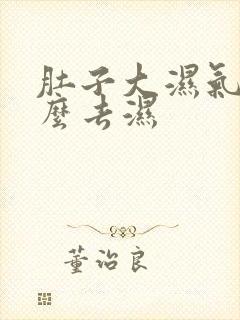 肚子大濕氣
麼去濕
董治良